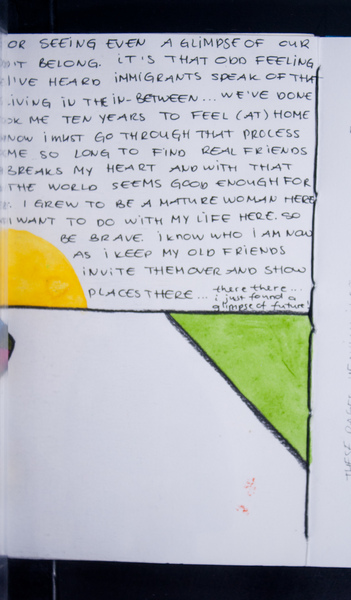 OR SEEING EVEN A GLIMPSE OF OUR
BELONG. IT'S THAT ODD FEELING
I'VE HEARD IMMIGRANTS SPEAK OF THAT
LIVING IN THE IN-BETWEEN... WE'VE DONE
ME TEN YEARS TO FEEL (AT) HOME
NOW I MUST GO THROUGH THAT PROCESS
ME SO LONG TO FIND REAL FRIENDS
BREAKS MY HEART AND WITH THAT
THE WORLD SEEMS GOOD ENOUGH FOR
I GREW TO BE A MATURE WOMAN HERE
I WANT TO DO WITH MY LIFE HERE. SO
BE BRAVE. I KNOW WHO I AM NOW
AS I KEEP MY OLD FRIENDS
INVITE THEM OVER AND SHOW
PLACES THERE... there there...
i just found a
glimpse of future!
THESE